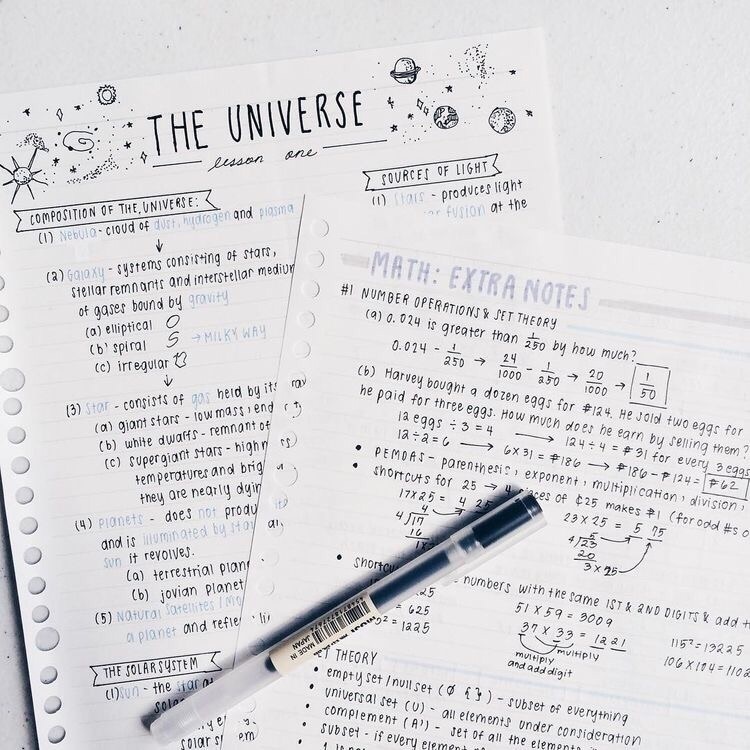 THE UNIVERSE
lesson one
COMPOSITION OF THE UNIVERSE:
(1) Nebula - cloud of dust, hydrogen and plasma
(2) Galaxy - systems consisting of stars,
stellar remnants and interstellar medium
of gases bound by gravity
(a) elliptical
(b) spiral → MILKY WAY
(c) irregular
(3) Star - consists of gas held by its
(a) giant stars - low mass,
(b) white dwarfs - remnant of
(c) supergiant stars - high
temperatures and
they are nearly
(4) Planets - does not
and is illuminated by
sun it revolves.
(a) terrestrial
(b) jovian
(5) Natural Satellites /
a planet and
THE SOLAR SYSTEM
(1) sun - the star
SOURCES OF LIGHT
(1) Stars - produces light
fusion at the
MATH: EXTRA NOTES
#1 NUMBER OPERATIONS & SET THEORY
(a) 0.024 is greater than 1/250 by how much?
0.024 - 1/250 → 24/1000 - 1/250 → 20/1000 → 1/50
(b) Harvey bought a dozen eggs for ₱124. He sold two eggs for
he paid for three eggs. How much does he earn by selling them?
12 eggs ÷ 3 = 4 → 124 ÷ 4 = ₱31 for every 3 eggs
12 ÷ 2 = 6 → 6 x 31 = ₱186 → ₱186 - ₱124 = ₱62
• PEMDAS - parenthesis, exponent, multiplication, division,
• shortcuts for 25 → 4 of ₵25 makes ₱1 (for odd #s
17 x 25 = 4 25
4
4/17
16
23 x 25 = 5 75
5
4/23
20
3 x 25
numbers with the same 1ST & 2ND DIGITS & add
625
= 1225
51 x 59 = 3009
37 x 33 = 1221
multiply
multiply
and add digit
115² = 13225
106 x 104 =
THEORY
• empty set / null set (Ø { }) - subset of everything
• universal set (U) - all elements under consideration
• complement (A') - set of all the elements
• subset - if every element
MADE IN
JAPAN